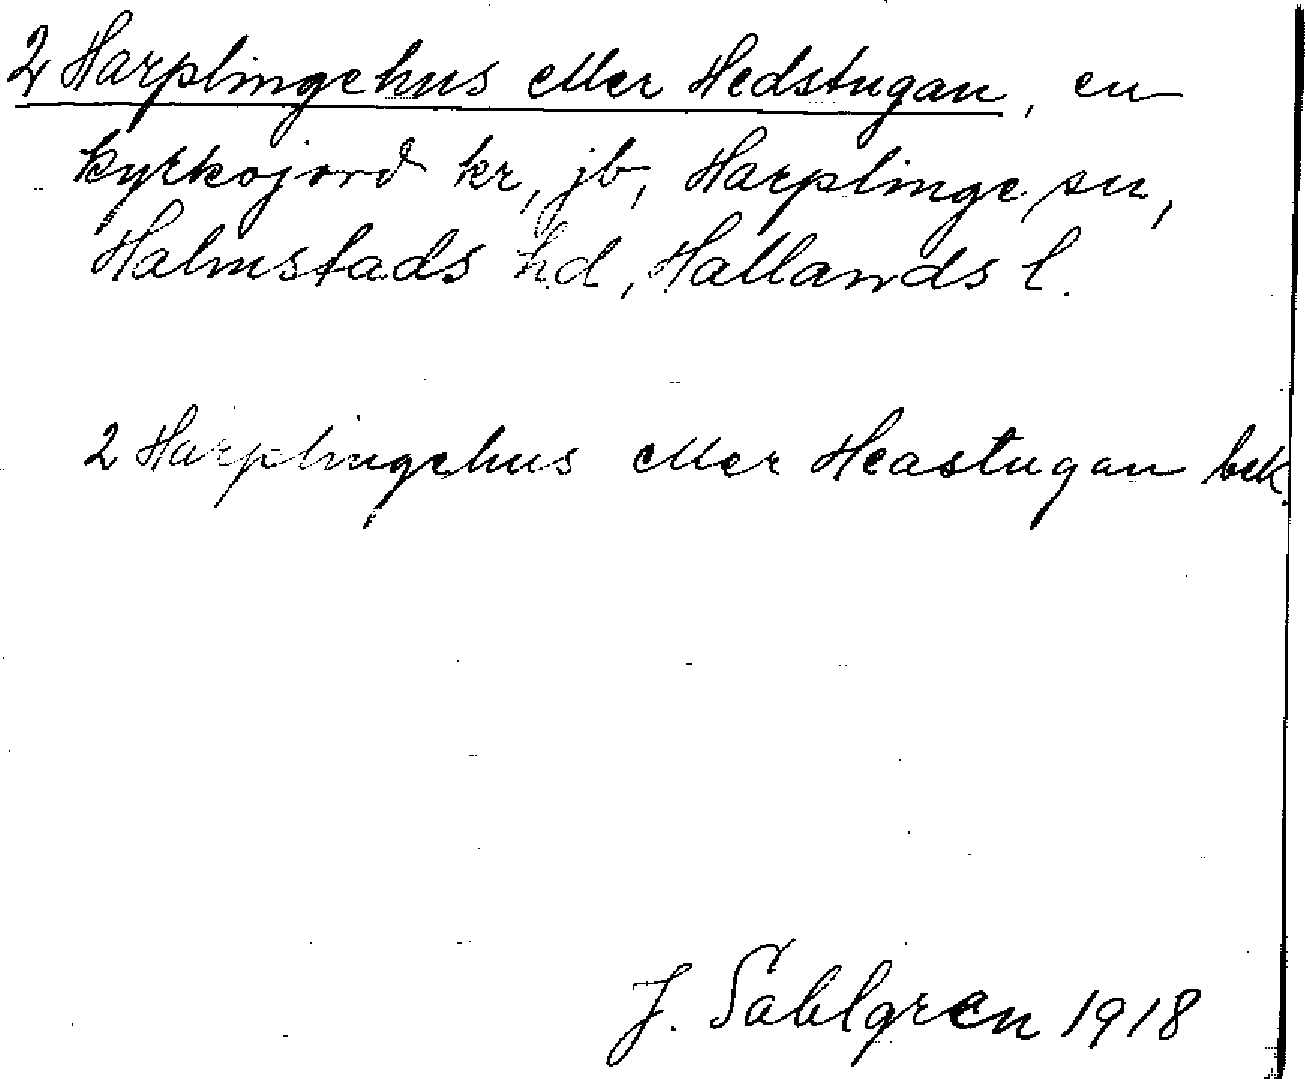 2 Harplingehus eller Hedstugan, en
kyrkojord kr, jb, Harplinge sn,
Halmstads hd, Hallands l.
2 Harplingehus eller Heastugan bek.
J. Sahlgren 1918